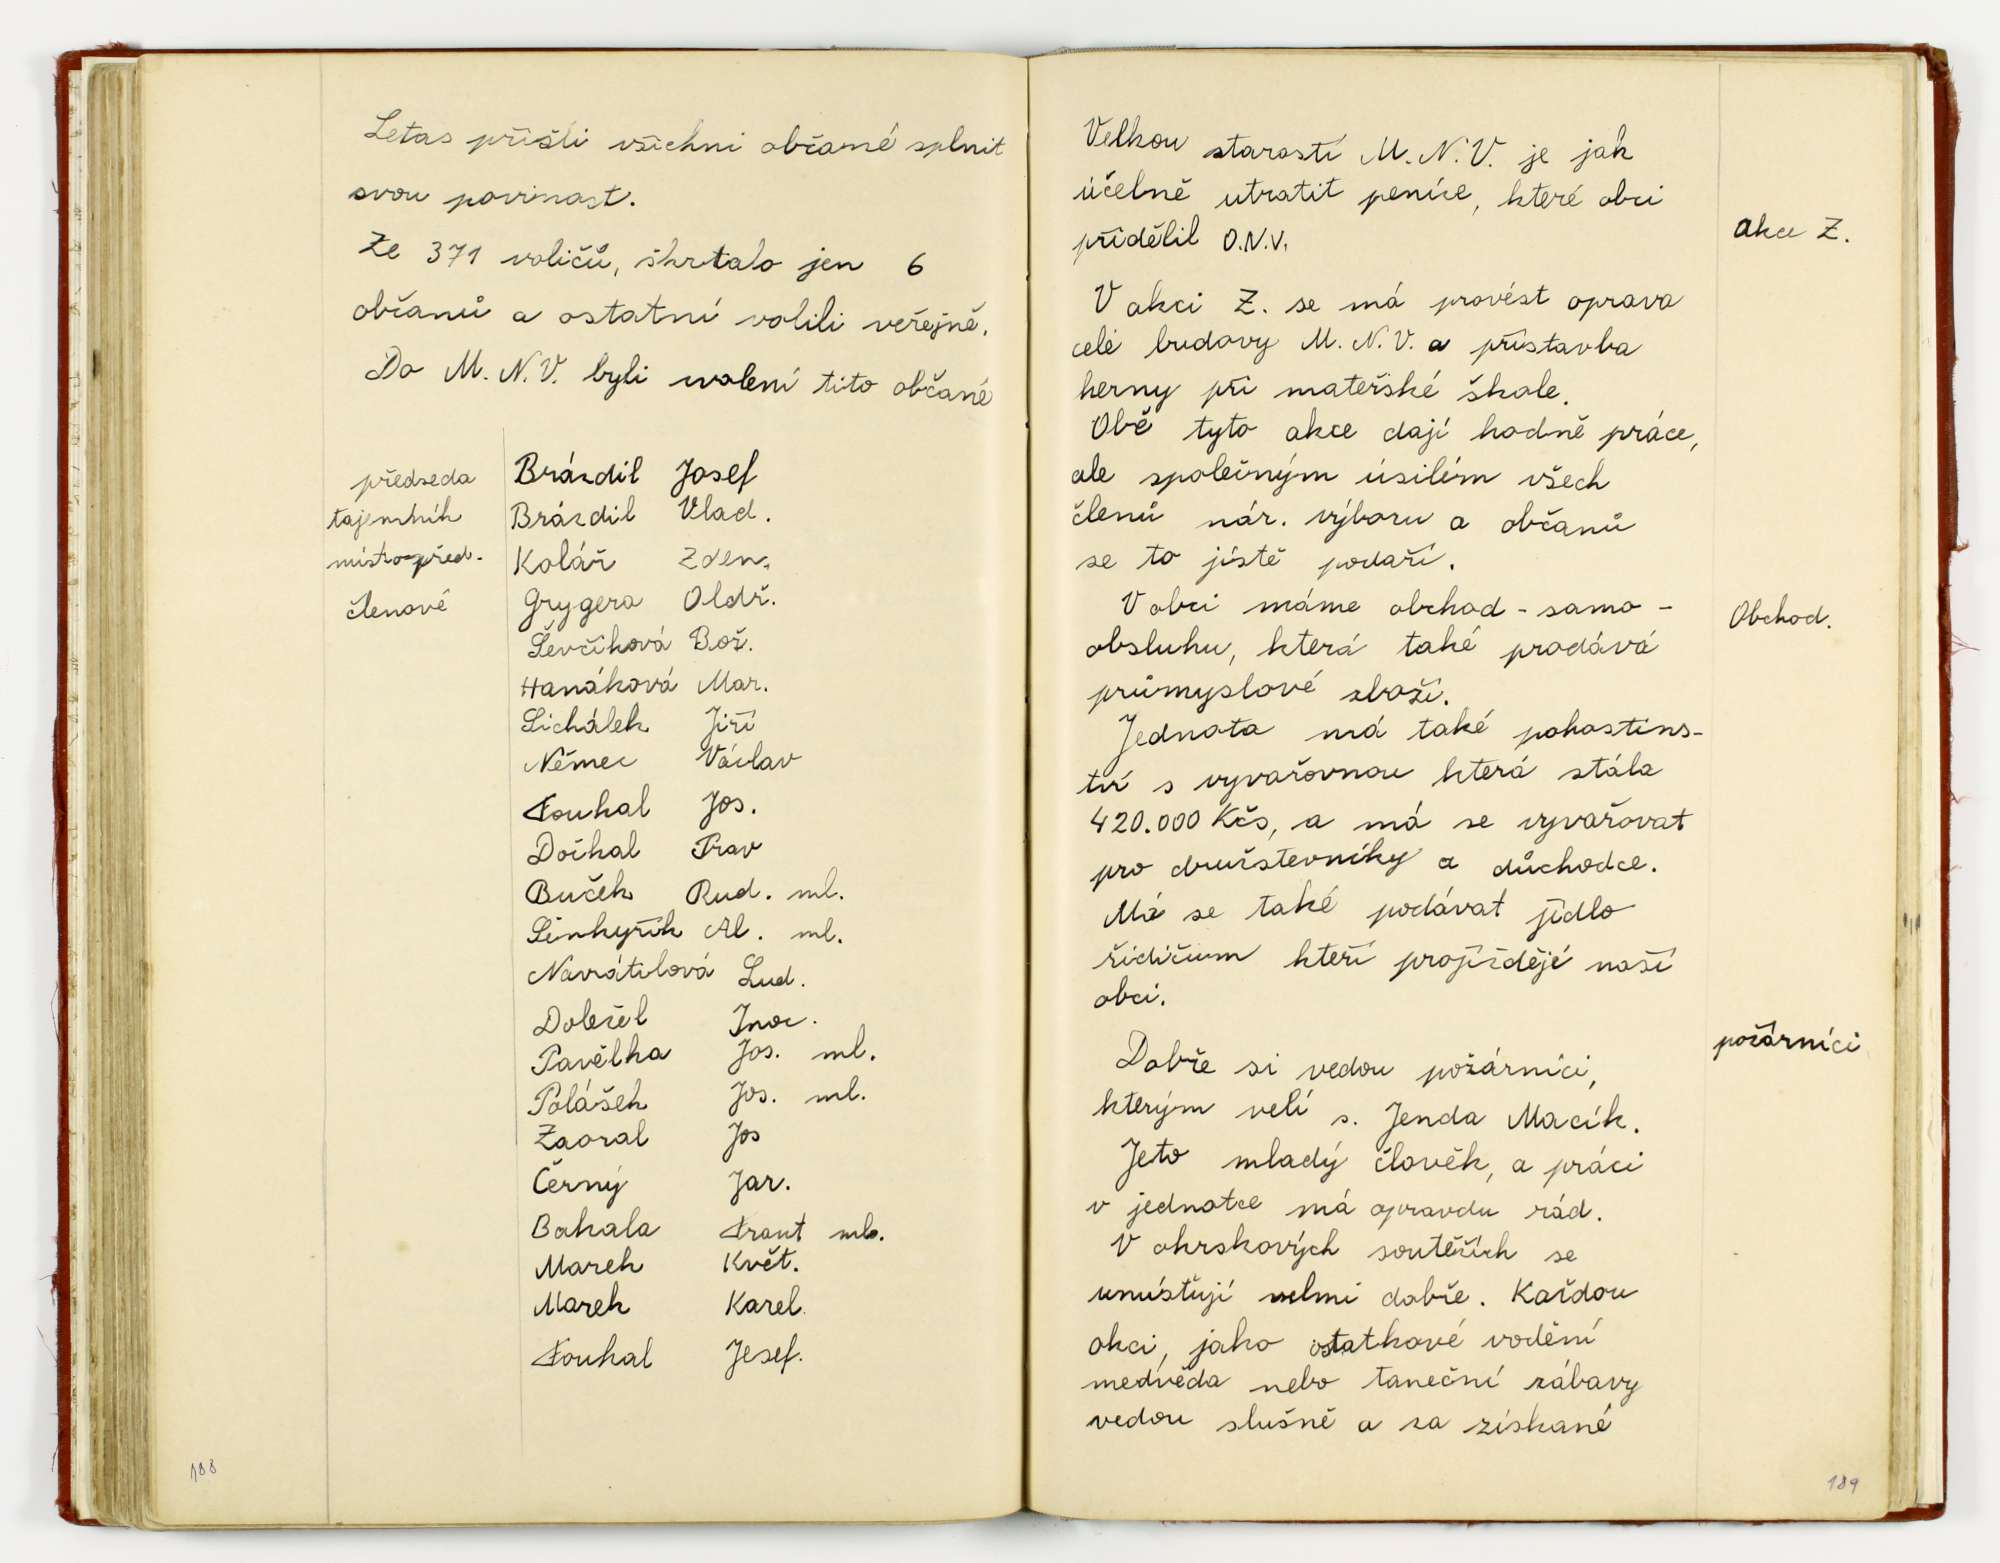 Letos přišli všichni občané splnit
svou povinost.
Ze 371 voličů, škrtalo jen 6
občanů a ostatní volili veřejně.
Do M.N.V. byli zvolení tito občané
předseda Brázdil Josef
tajemník Brázdil Vlad.
místopřed. Kolář Zden.
členové Grygera Oldř.
Ševčíková Bož.
Hanáková Mar.
Lichálek Jiří
Němec Václav
Fouhal Jos.
Dočkal Frav
Buček Rud. ml.
Linkyřík Al. ml.
Navrátilová Lud.
Doležel Inoc.
Pavělka Jos. ml.
Polášek Jos. ml.
Zaoral Jos
Černý Jar.
Bakala Frant ml.
Marek Květ.
Marek Karel.
Fouhal Josef.
188
Velkou starostí M.N.V. je jak
účelně utratit peníze, které obci
přidělil O.N.V.
akce Z.
V akci Z. se má provést oprava
celé budovy M.N.V. a přístavba
herny při mateřské škole.
Obě tyto akce dají hodně práce,
ale společným úsilím všech
členů nár. výboru a občanů
se to jistě podaří.
V obci máme obchod - samo-
Obchod.
obsluhu, která také prodává
průmyslové zboží.
Jednota má také pohostins-
tví s vyvařovnou která stála
420.000 Kčs, a má se vyvařovat
pro družstevníky a důchodce.
Má se také podávat jídlo
řidičum kteří projíždějí naší
obci.
požárníci
Dobře si vedou požárníci,
kterým velí s. Jenda Macík.
Jeto mladý člověk, a práci
v jednotce má opravdu rád.
V okrskových soutěžích se
umístují velmi dobře. Každou
akci, jako ostatkové vodění
medvěda nebo taneční zábavy
vedou slušně a za získané
189